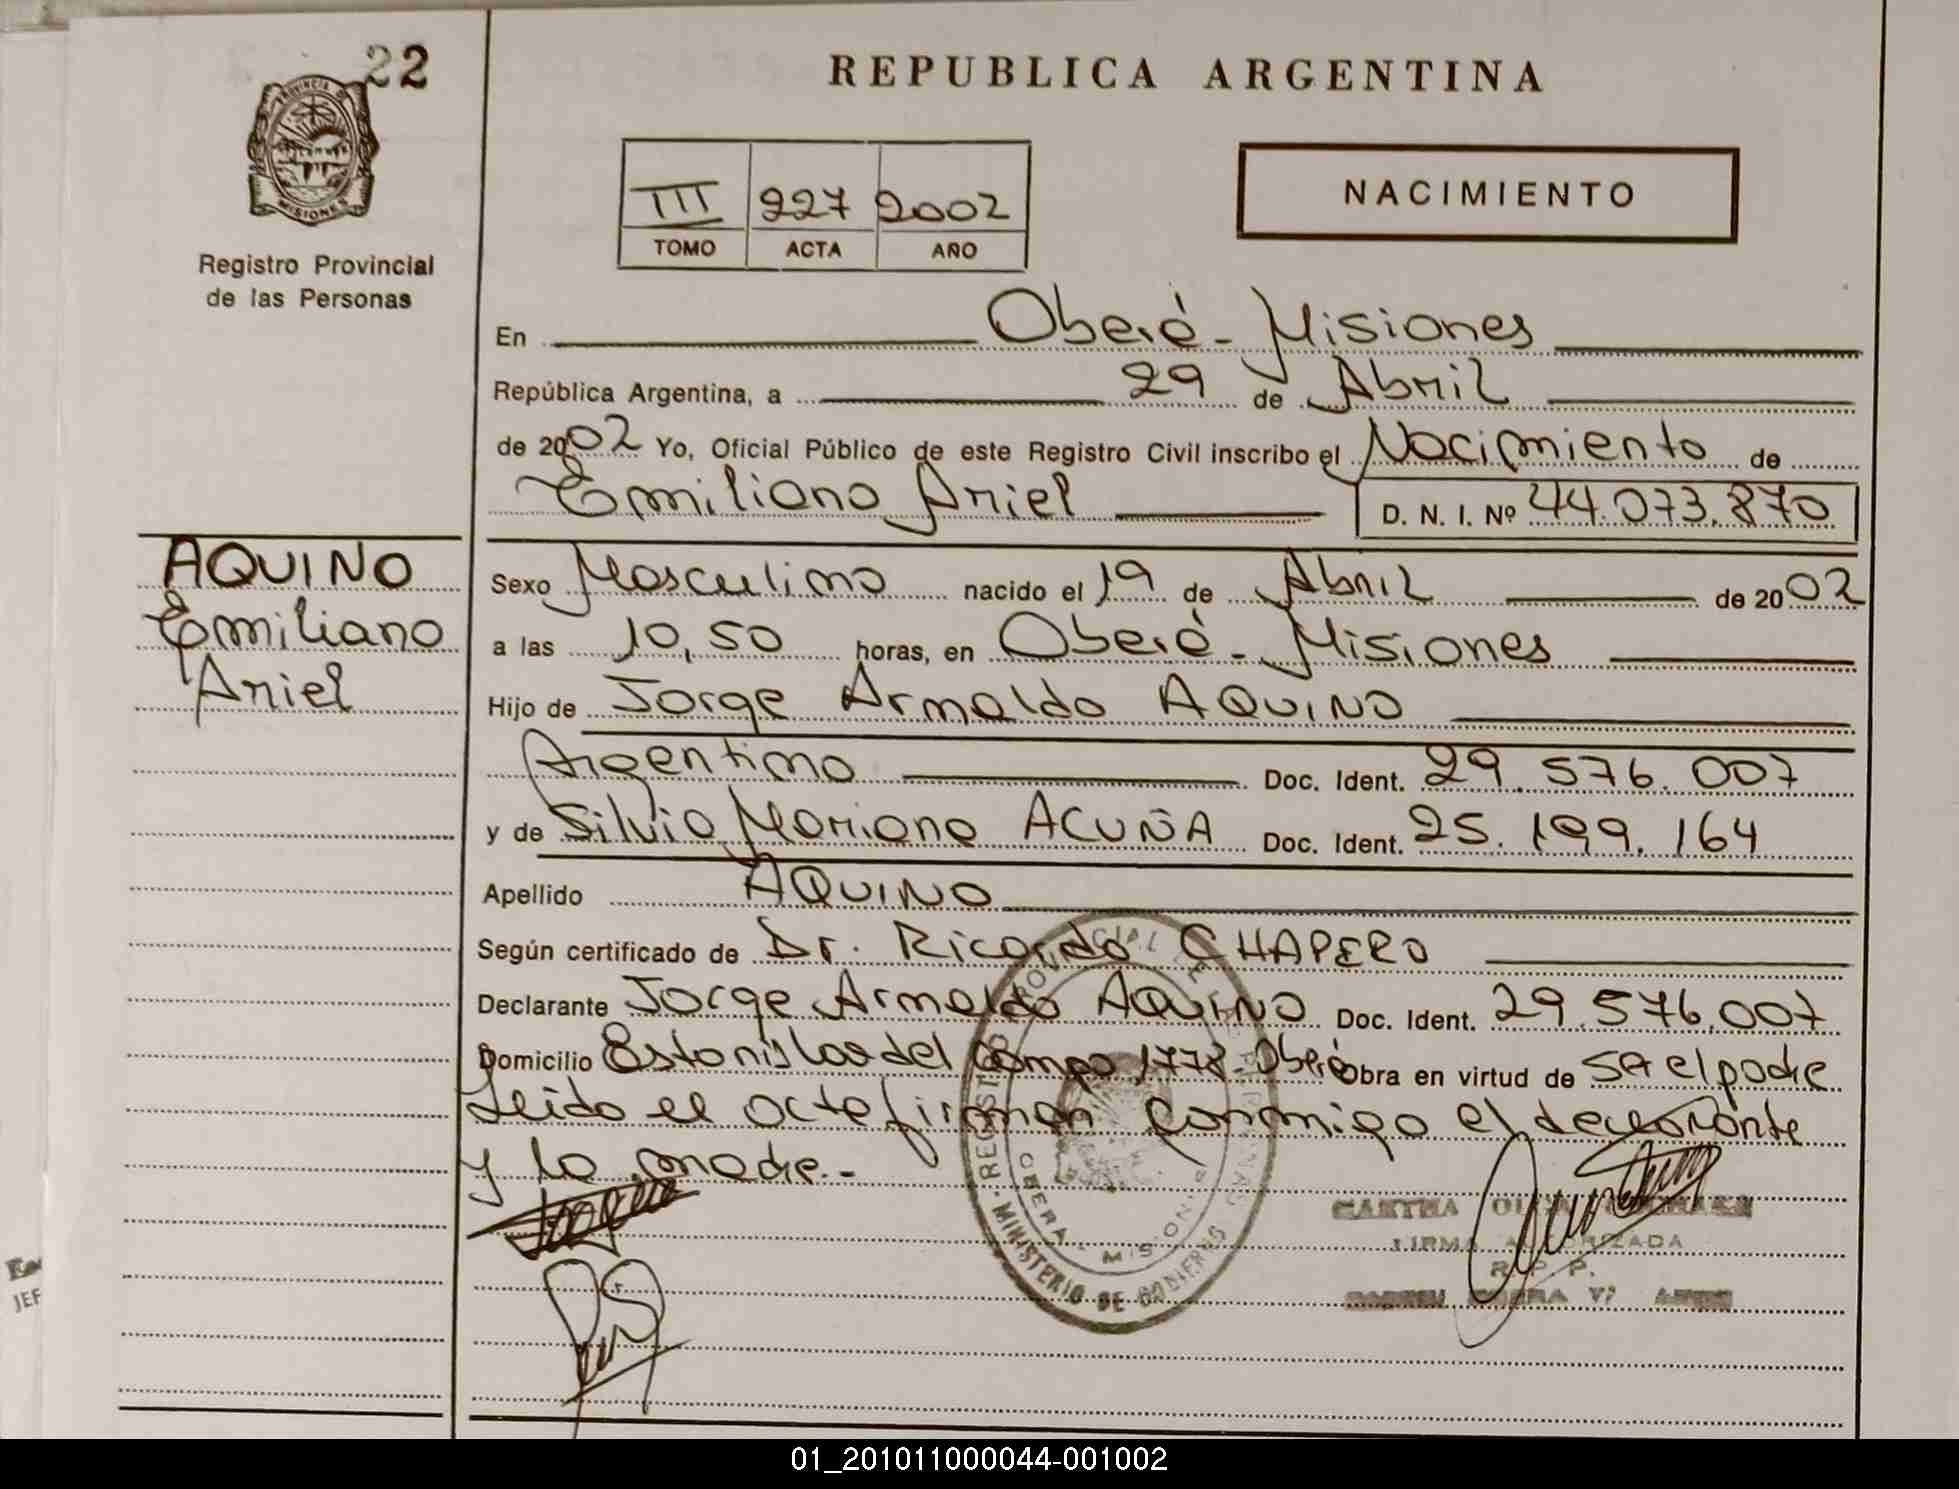 22
REPUBLICA ARGENTINA
PROVINCIA DE
MISIONES
Registro Provincial
de las Personas
III 227 2002
TOMO ACTA AÑO
NACIMIENTO
En Oberá - Misiones
República Argentina, a 29 de Abril
de 2002 Yo, Oficial Público de este Registro Civil inscribo el Nacimiento de
Emiliano Ariel D. N. I. Nº 44.073.870
AQUINO
Emiliano
Ariel
Sexo Masculino nacido el 19 de Abril de 2002
a las 10,50 horas, en Oberá - Misiones
Hijo de Jorge Arnaldo AQUINO
Argentino Doc. Ident. 29.576.007
y de Silvia Mariana ACUÑA Doc. Ident. 25.199.164
Apellido AQUINO
Según certificado de Dr. Ricardo CHAPERO
Declarante Jorge Arnaldo AQUINO Doc. Ident. 29.576.007
Domicilio Estanislao del Campo 1778 - Oberá Obra en virtud de ser el padre
Leido el acta firman conmigo el declarante
y la madre.-
REGISTRO PROVINCIAL DE
MINISTERIO DE GOBIERNO
OBERA - MISIONES
FIRMA AUTORIZADA
R. P. P.
JEF
01_201011000044-001002